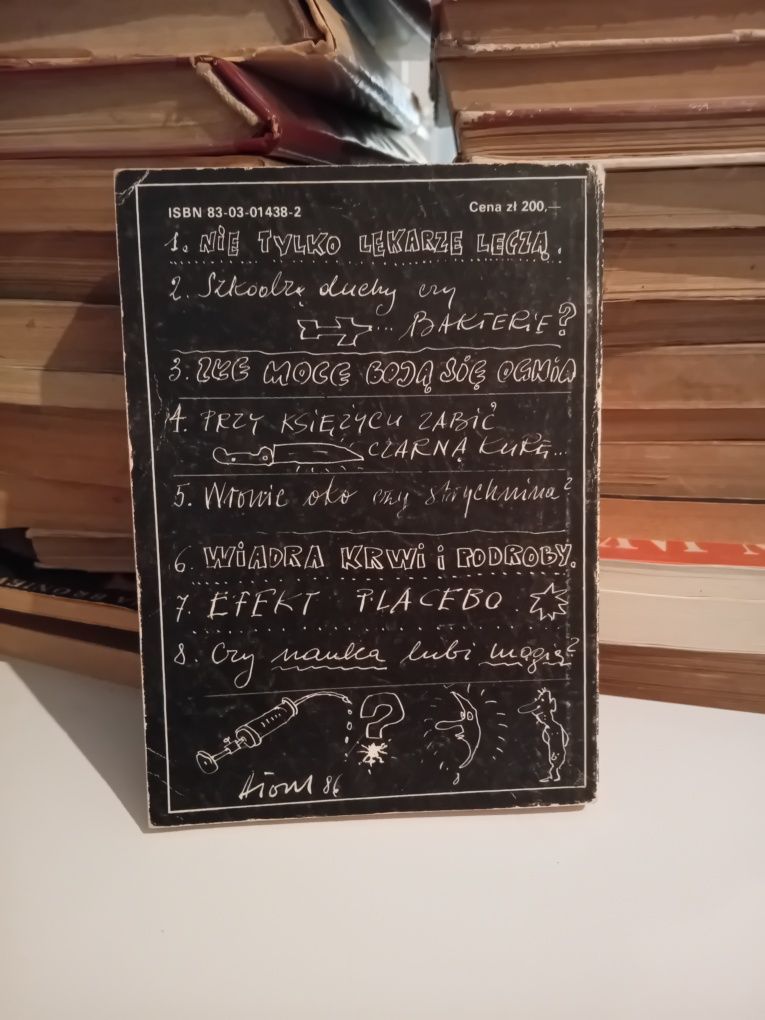 ISBN 83-03-01438-2
Cena zł 200,—
1. NIE TYLKO LEKARZE LECZĄ.
2. Szkodzą duchy czy
... BAKTERIE?
3. ZŁE MOCE BOJĄ SIĘ OGNIA
4. PRZY KSIĘŻYCU ZABIĆ
CZARNĄ KURĘ...
5. Wronie oko czy strychnina?
6. WIADRA KRWI i PODROBY.
7. EFEKT PLACEBO.
8. Czy nauka lubi magię?
?
86